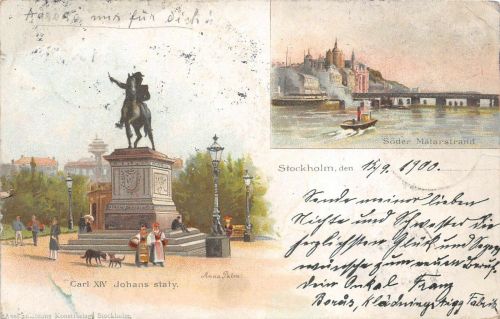 Agathe, nur für dich!
Söder Mälarstrand
Stockholm, den 15/9. 1900.
Sende meiner lieben
Nichte und Schwester die
herzlichsten Glück und Segens
wünsche zum neuen
dein Onkel Franz
Borås, Klädnings
Anna Palm
Carl XIV Johans staty.
Konstförlag Stockholm.